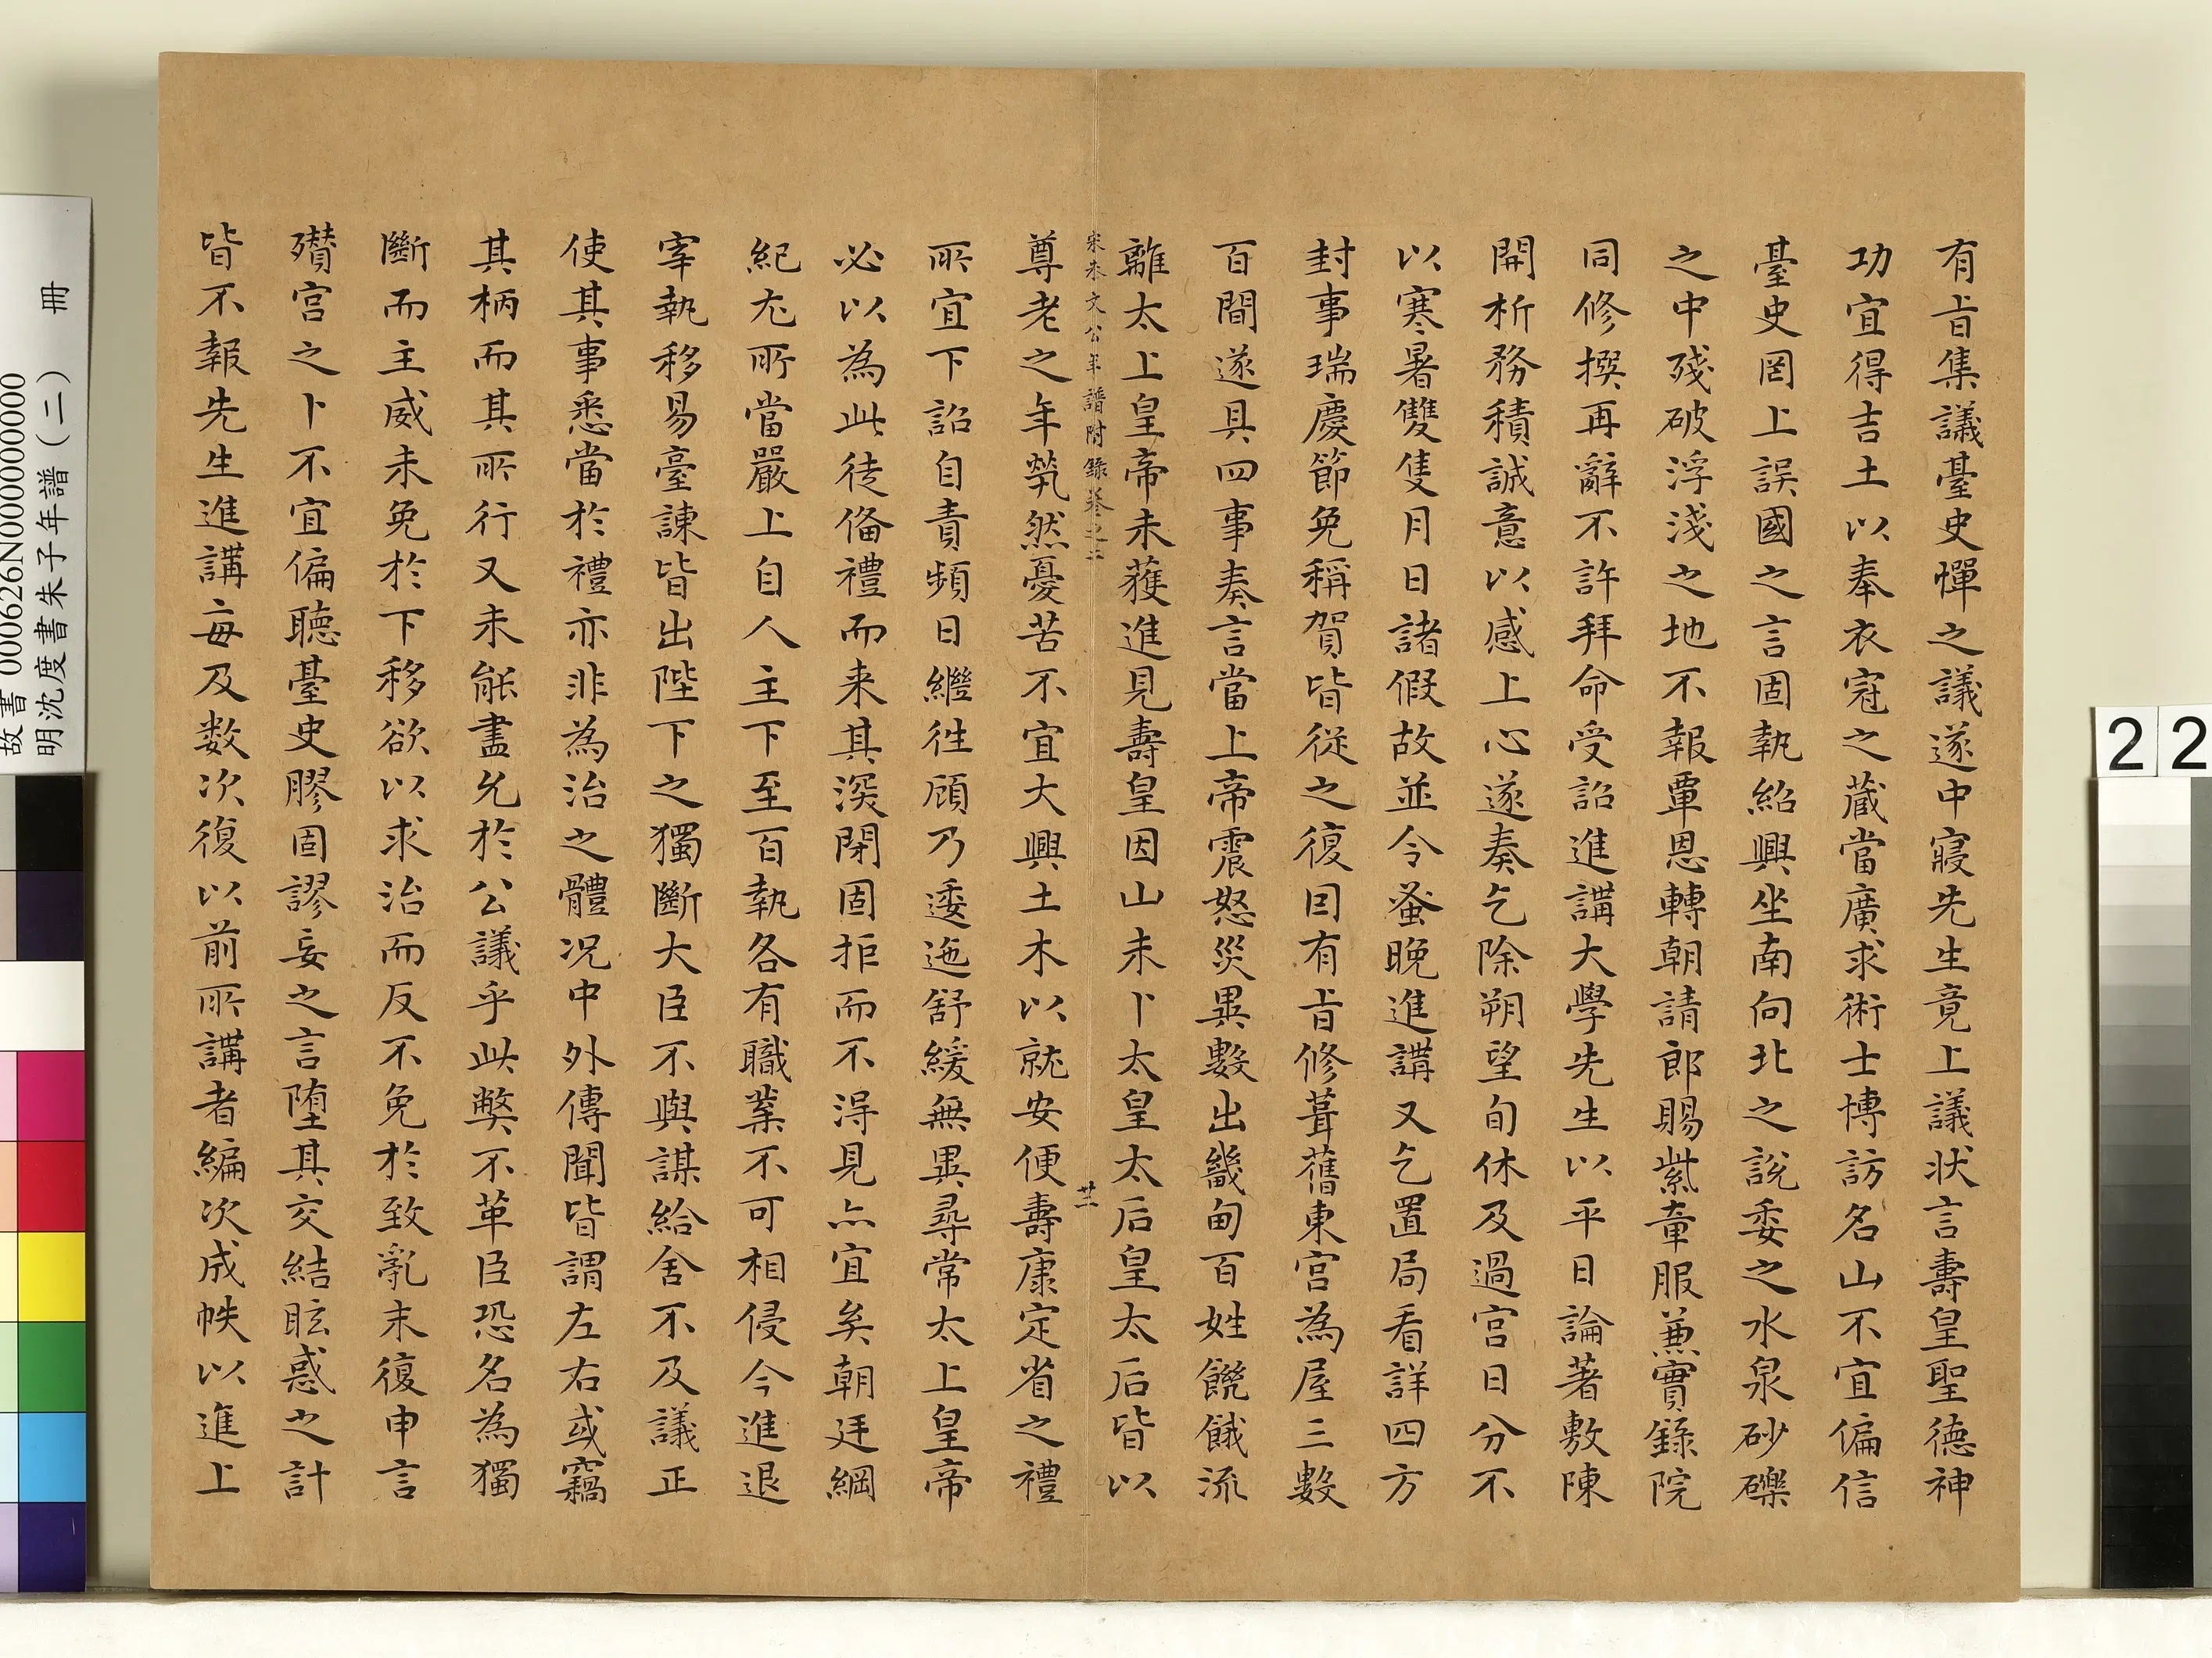 有旨集議臺史憚之議遂中寢先生竟上議狀言壽皇聖德神
功宜得吉土以奉衣冠之藏當廣求術士博訪名山不宜偏信
臺史罔上誤國之言固執紹興坐南向北之說委之水泉砂礫
之中殘破浮淺之地不報覃恩轉朝請郎賜紫章服兼實錄院
同修撰再辭不許拜命受詔進講大學先生以平日論著敷陳
開析務積誠意以感上心遂奏乞除朔望旬休及過宮日分不
以寒暑雙隻月日諸假故並令蚤晚進講又乞置局看詳四方
封事瑞慶節免稱賀皆從之復因有旨修葺舊東宮為屋三數
百間遂具四事奏言當上帝震怒災異數出畿甸百姓饑餓流
離太上皇帝未獲進見壽皇因山未卜太皇太后皇太后皆以
宋朱文公年譜附錄卷之二
廿二
尊老之年煢然憂苦不宜大興土木以就安便壽康定省之禮
所宜下詔自責頻日繼往顧乃逶迤舒緩無異尋常太上皇帝
必以為此徒備禮而来其深閉固拒而不淂見亦宜矣朝廷綱
紀尤所當嚴上自人主下至百執各有職業不可相侵今進退
宰執移易臺諫皆出陛下之獨斷大臣不與謀給舍不及議正
使其事悉當於禮亦非為治之體况中外傳聞皆謂左右或竊
其柄而其所行又未能盡允於公議乎此弊不革臣恐名為獨
斷而主威未免於下移欲以求治而反不免於致亂末復申言
殯宮之卜不宜偏聽臺史膠固謬妄之言墮其交結眩惑之計
皆不報先生進講每及数次復以前所講者編次成帙以進上
故書 000626N000000000
明沈度書朱子年譜(二) 冊
22